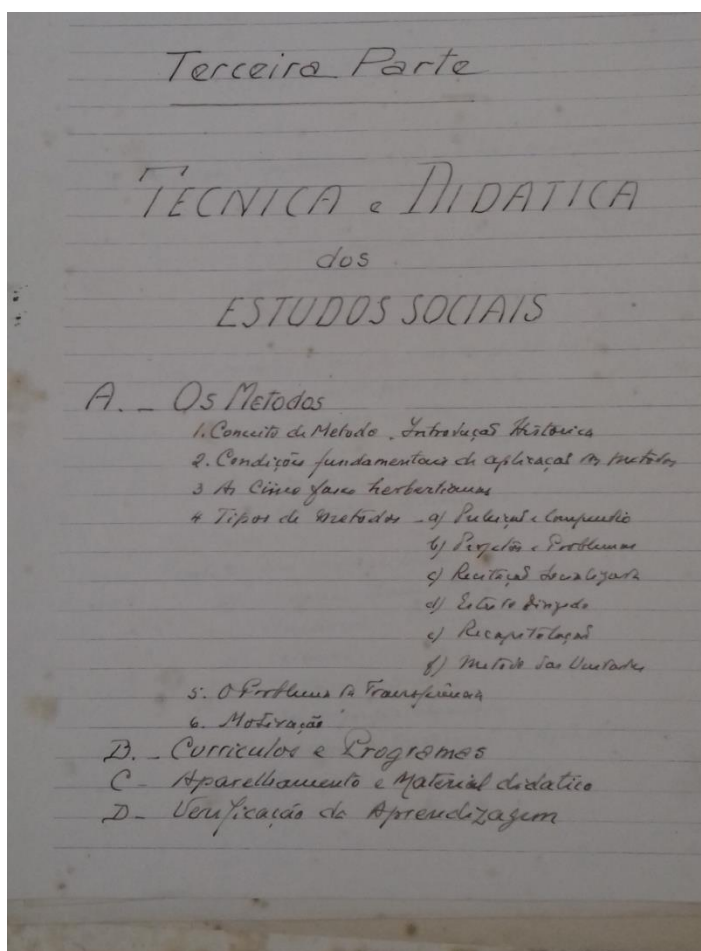 Terceira Parte
TECNICA e DIDATICA
dos
ESTUDOS SOCIAIS
A. - Os Metodos
1. Conceito de Metodo. Introdução Historica
2. Condições fundamentais de aplicação dos metodos
3 As Cinco fases herbertianas
4 Tipos de Metodos - a) Preleção e Compendio
b) Projetos e Problemas
c) Recitação Socializada
d) Estudo dirigido
e) Recapitulação
f) Metodo das Unidades
5. O Problema da Transferência
6. Motivação
B. - Curriculos e Programas
C - Aparelhamento e Material didatico
D - Verificação da Aprendizagem